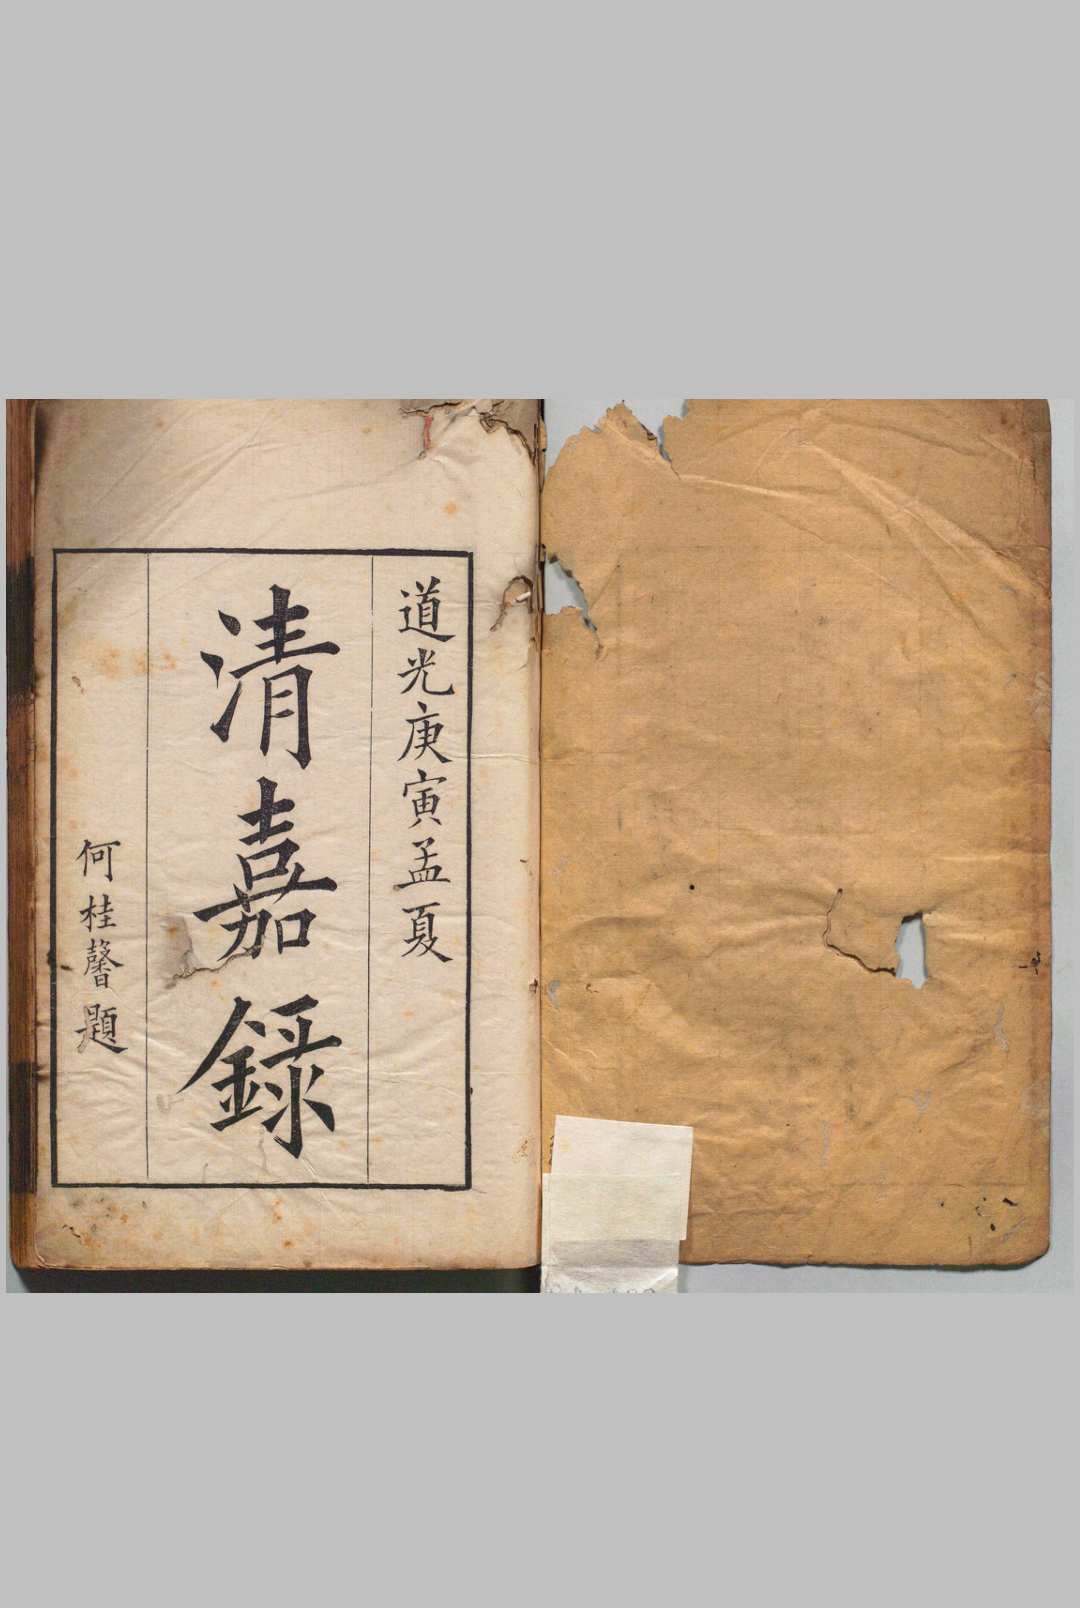 道光庚寅孟夏
清嘉錄
何桂馨題